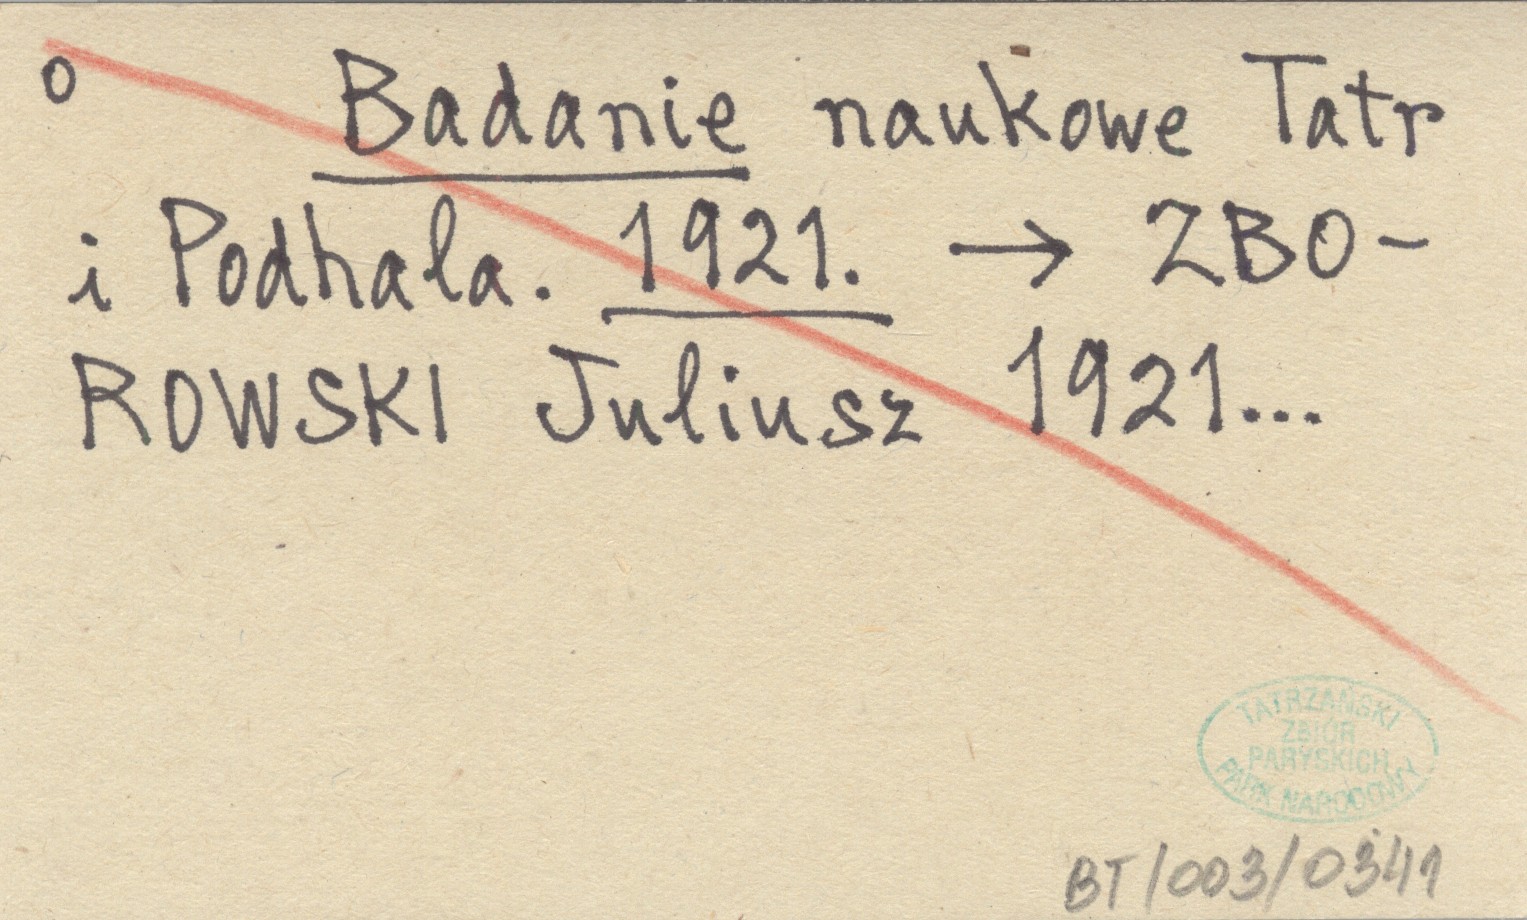 o Badanie naukowe Tatr
i Podhala. 1921. → ZBO-
ROWSKI Juliusz 1921...
TATRZAŃSKI
ZBIÓR
PARYSKICH
PARK NARODOWY
BT/003/0341